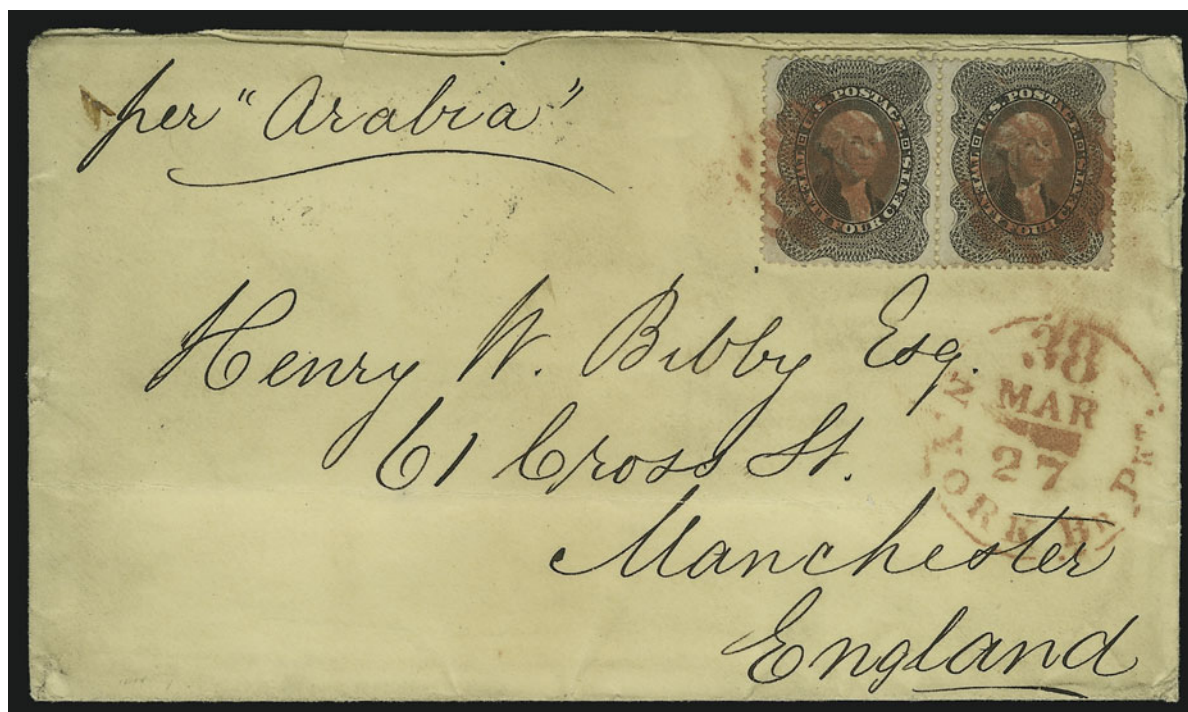 per "Arabia"
U.S. POSTAGE
TWENTY FOUR CENTS.
U.S. POSTAGE
TWENTY FOUR CENTS.
Henry W. Bibby Esq.
61 Cross St.
Manchester
England
38
MAR
27
N. YORK. Br PKT